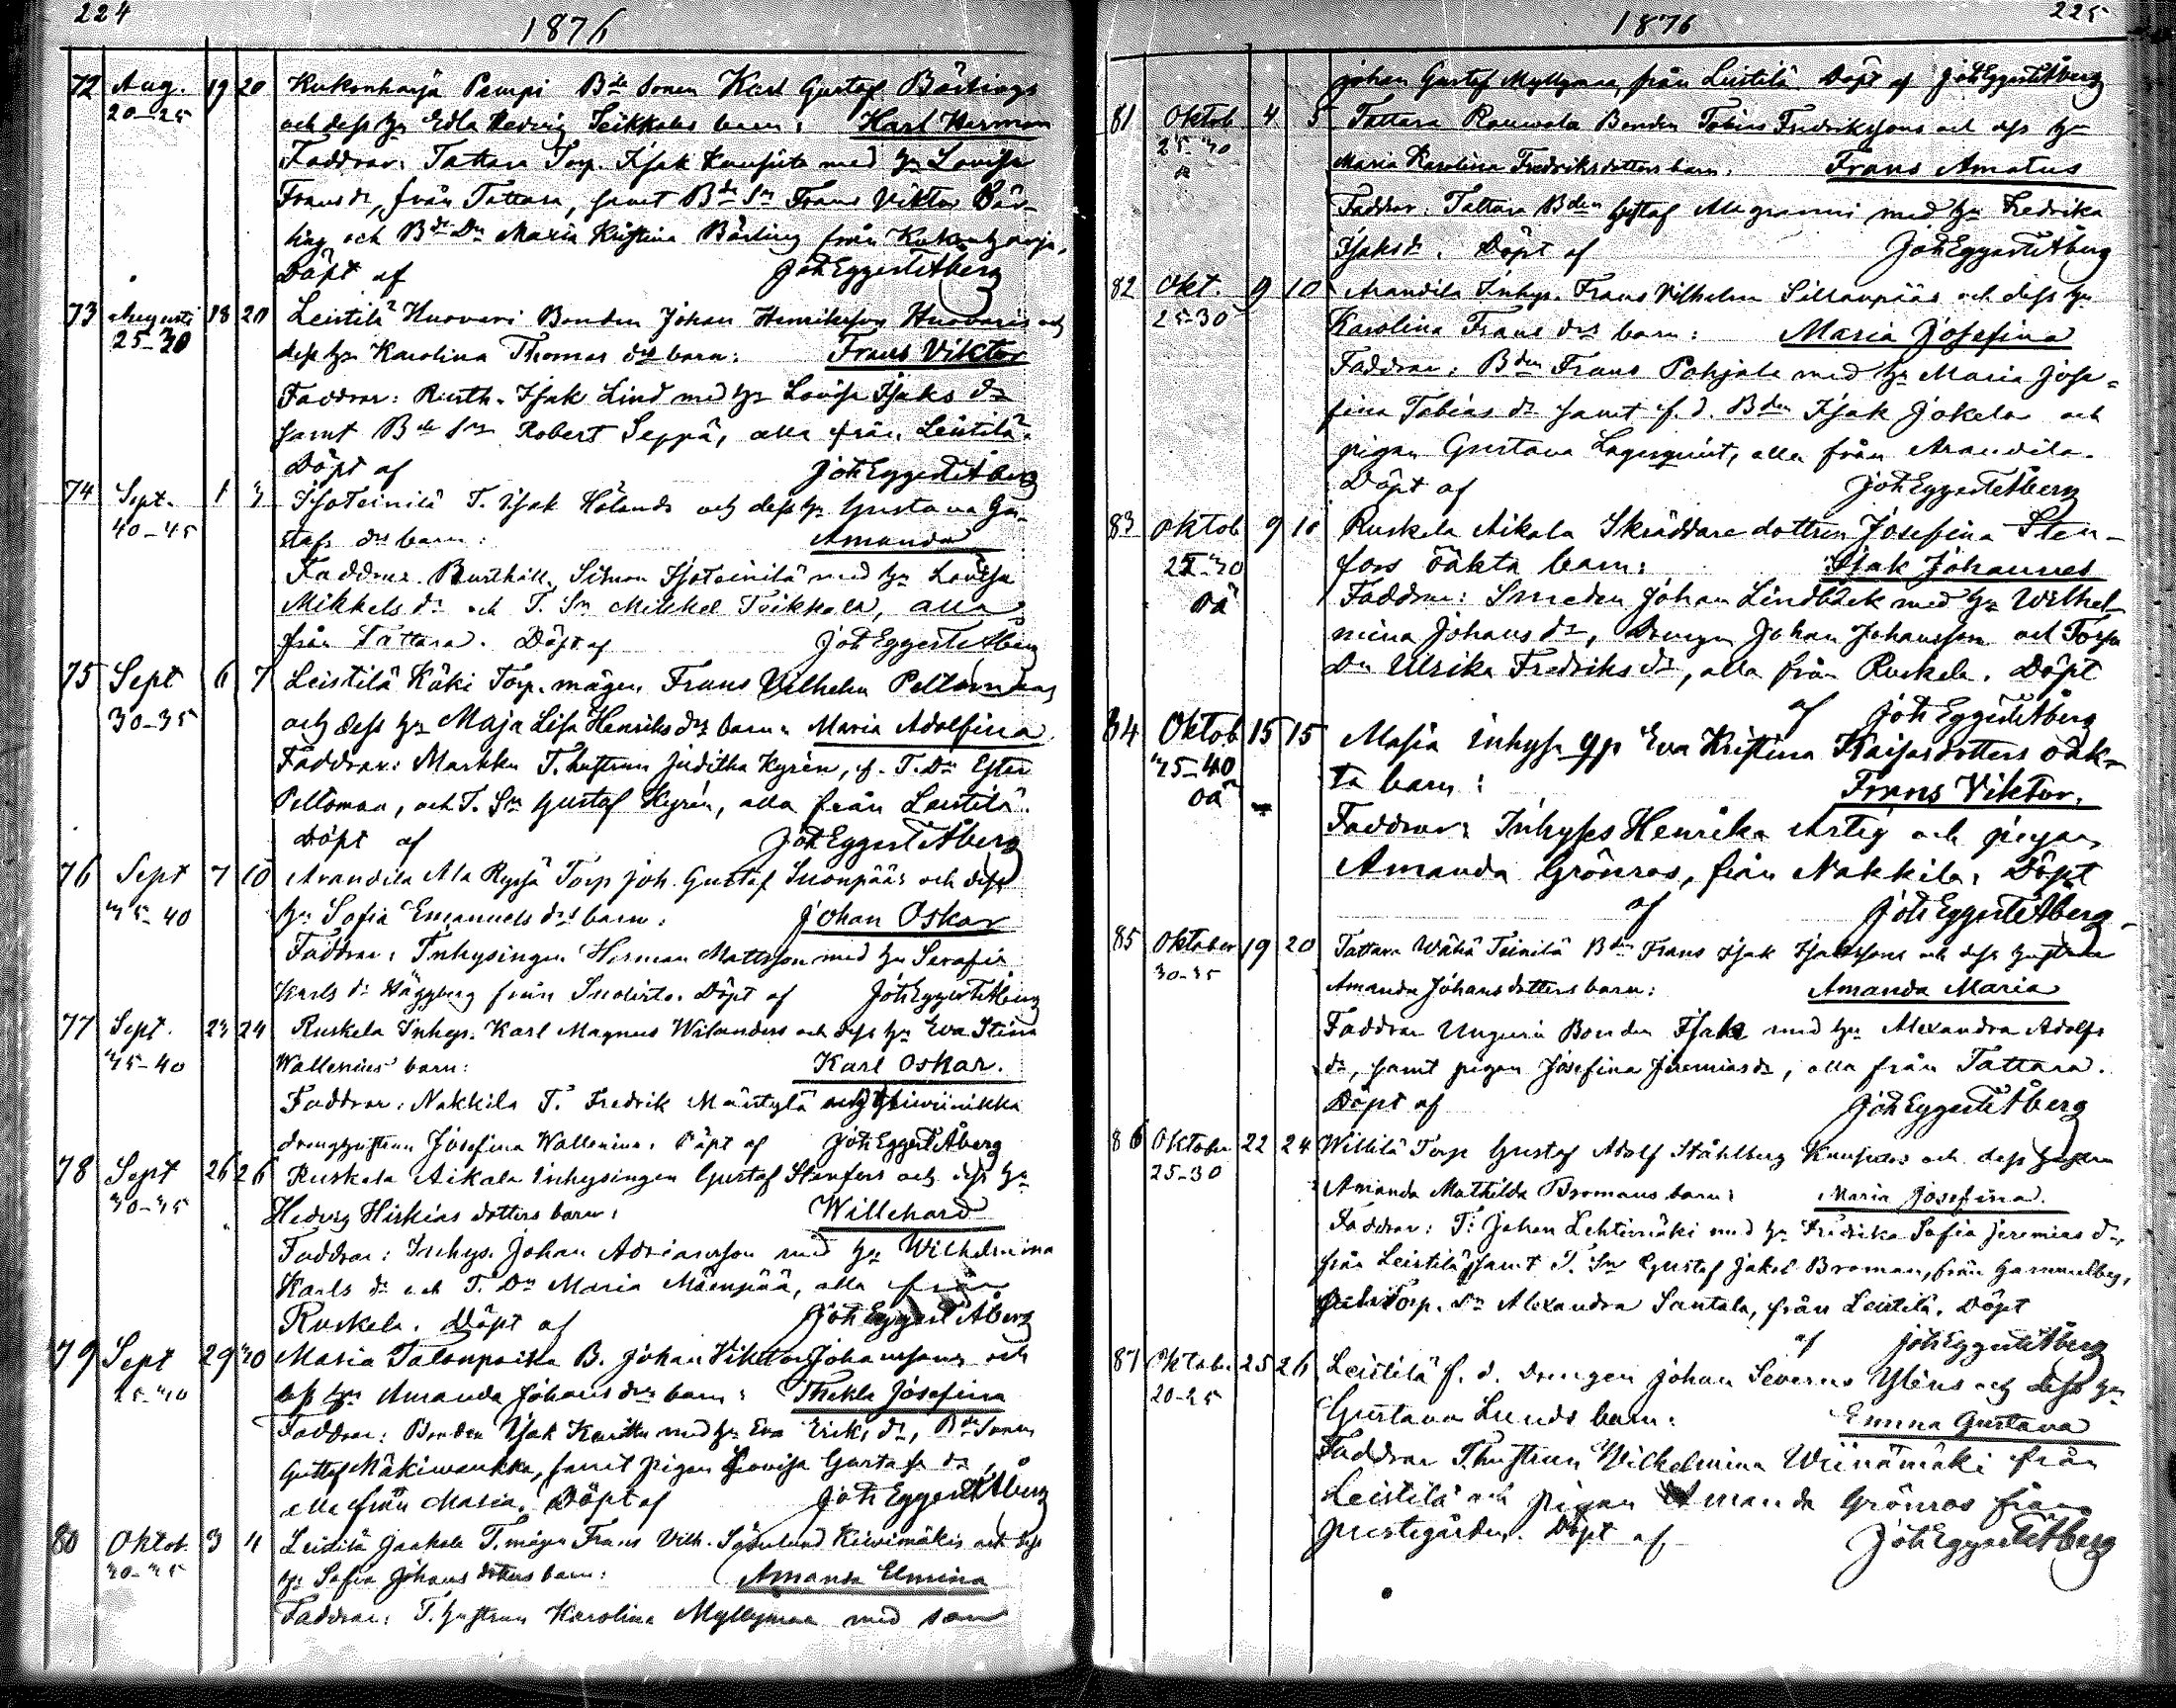 224
1876
72 Aug. 19 20 Kukonharja Pempi Bde Sonen Karl Gustaf Bärlings
20-25 och dess hu Edla Hedvig Seikkalas barn: Karl Herman
Faddrar: Tattara Torp. Isak Kaupita med hu Lovisa
Fransdr, från Tattara, samt Bde Sn Frans Viktor Bär-
ling och Bde Dn Maria Kristina Bärling från Kukonharja,
Döpt af Joh Eggert Åberg
73 Augusti 18 20 Leistilä Huovari Bonden Johan Henriksson Huovaris och
25-30 dess hu Karolina Thomas drs barn: Frans Viktor
Faddrar: Rusth. Isak Lind med hu Lovisa Isaks dr
samt Bde Sn Robert Seppä, alla från Leistilä.
Döpt af Joh Eggert Åberg
74 Sept. 1 3 Isoteinilä T. Isak Hölands och dess hu Gustava Gu-
40-45 stafs drs barn: Amanda
Faddrar. Simon Isoteinilä med hu Lovisa
Mikkels dr och T. Sn Mikkel Toikkala, alla
från Tattara. Döpt af Joh Eggert Åberg
75 Sept 6 7 Leistilä Käki Torp. mågen Frans Vilhelm Pellomaas
30-35 och dess hu Maja Lisa Henriks drs barn: Maria Adolfina
Faddrar: Markku T. hustrun Juditha Kyrén, f. T. Dn Ester
Pellomaa, och T. Sn Gustaf Kyrén, alla från Leistilä.
Döpt af Joh Eggert Åberg
76 Sept 7 10 Arandila Ala Ryssä Torp Joh. Gustaf Suonpääs och dess
35-40 hu Sofia Emanuels drs barn: Johan Oskar
Faddrar: Inhysingen Herman Mattsson med hu Serafia
Karls dr Häggberg från Suolisto. Döpt af Joh Eggert Åberg
77 Sept. 23 24 Ruskela Inhys. Karl Magnus Wilanders och dess hu Eva Stina
35-40 Wallenius' barn: Karl Oskar.
Faddrar: Nakkila T. Fredrik Mäntylä och
drenghustrun Josefina Wallenius. Döpt af Joh Eggert Åberg
78 Sept 26 26 Ruskela Aikala Inhysingen Gustaf Stenfors och dess hu
30-35 Hedvig Hiskias dotters barn: Willehard
Faddrar: Inhys. Johan Adriansson med hu Wilhelmina
Karls dr och T. Dn Maria Mäenpää, alla från
Ruskela. Döpt af Joh Eggert Åberg
79 Sept 29 30 Masia Talonpoika B. Johan Viktor Johanssons och
dess hu Amanda Johans drs barn: Thekla Josefina
Faddrar: Bonden Isak Karittu med hu Eva Eriks dr, Bde Sonen
Gustaf Mäkiwaukka, samt pigan Lovisa Gustafs dr,
alla från Masia. Döpt af Joh Eggert Åberg
80 Oktob. 3 4 Leistilä Jaakola T. mågen Frans Vilh. Söderlund Kiwimäkis och dess
30-35 hu Sofia Johans dotters barn: Amanda Elmina
Faddrar: T. hustrun Karolina Myllymaa med son
225
1876
Johan Gustaf Myllymaa, från Leistilä. Döpt af Joh Eggert Åberg
81 Oktob 4 5 Tattara Rouwala Bonden Tobias Fredrikssons och dess hu
25-30 Maria Karolina Fredriksdotters barn: Frans Amatus
Faddrar: Tattara Bden Gustaf Alegranni med hu Fredrika
Isaksdr. Döpt af Joh Eggert Åberg
82 Okt. 9 10 Arandila Inhys. Frans Vilhelm Sillanpääs och dess hu
25-30 Karolina Frans drs barn: Maria Josefina
Faddrar: Bden Frans Pohjala med hu Maria Jose-
fina Tobias dr samt f.d. Bden Isak Jokela och
pigan Gustava Lagerqvist, alla från Arandila.
Döpt af Joh Eggert Åberg
83 Oktob 9 10 Ruskela Aikala Skräddare dottren Josefina Sten-
25-30 fors oäkta barn: Isak Johannes
oä Faddrar: Smeden Johan Lindbäck med hu Wilhel-
mina Johans dr, Drengen Johan Johansson och Torpa
Dn Ulrika Fredriks dr, alla från Ruskela. Döpt
af Joh Eggert Åberg
84 Oktob 15 15 Masia inhyse qp Eva Kristina Kaisasdotters oäk-
35-40 ta barn: Frans Viktor.
oä Faddrar: Inhyses Henrika Artig och pigan
Amanda Grönroos, från Nakkila. Döpt
af Joh Eggert Åberg
85 Oktober 19 20 Tattara Wähä Teinilä Bden Frans Isak Isakssons och dess hustrus
30-35 Amanda Johansdotters barn: Amanda Maria
Faddrar Unguri Bonden Isak med hu Alexandra Adolfs
dr, samt pigan Josefina Jeremiasdr, alla från Tattara.
Döpt af Joh Eggert Åberg
86 Oktober 22 24 Willilä Torp Gustaf Adolf Ståhlberg och dess hustru
25-30 Amanda Mathilda Bromans barn: Maria Josefina.
Faddrar: T. Johan Lehtimäki med hu Fredrika Sofia Jeremias dr,
från Leistilä, samt T. Sn Gustaf Jakob Broman, från Gammelby,
Torp. Dn Alexandra Santala, från Leistilä. Döpt
af Joh Eggert Åberg
87 Oktobr. 25 26 Leistilä f. d. drengen Johan Severus Yléns och dess hu
20-25 Gustava Lunds barn: Emma Gustava
Faddrar T. hustrun Wilhelmina Wiinämäki från
Leistilä och pigan Amanda Grönroos från
prestgården. Döpt af Joh Eggert Åberg